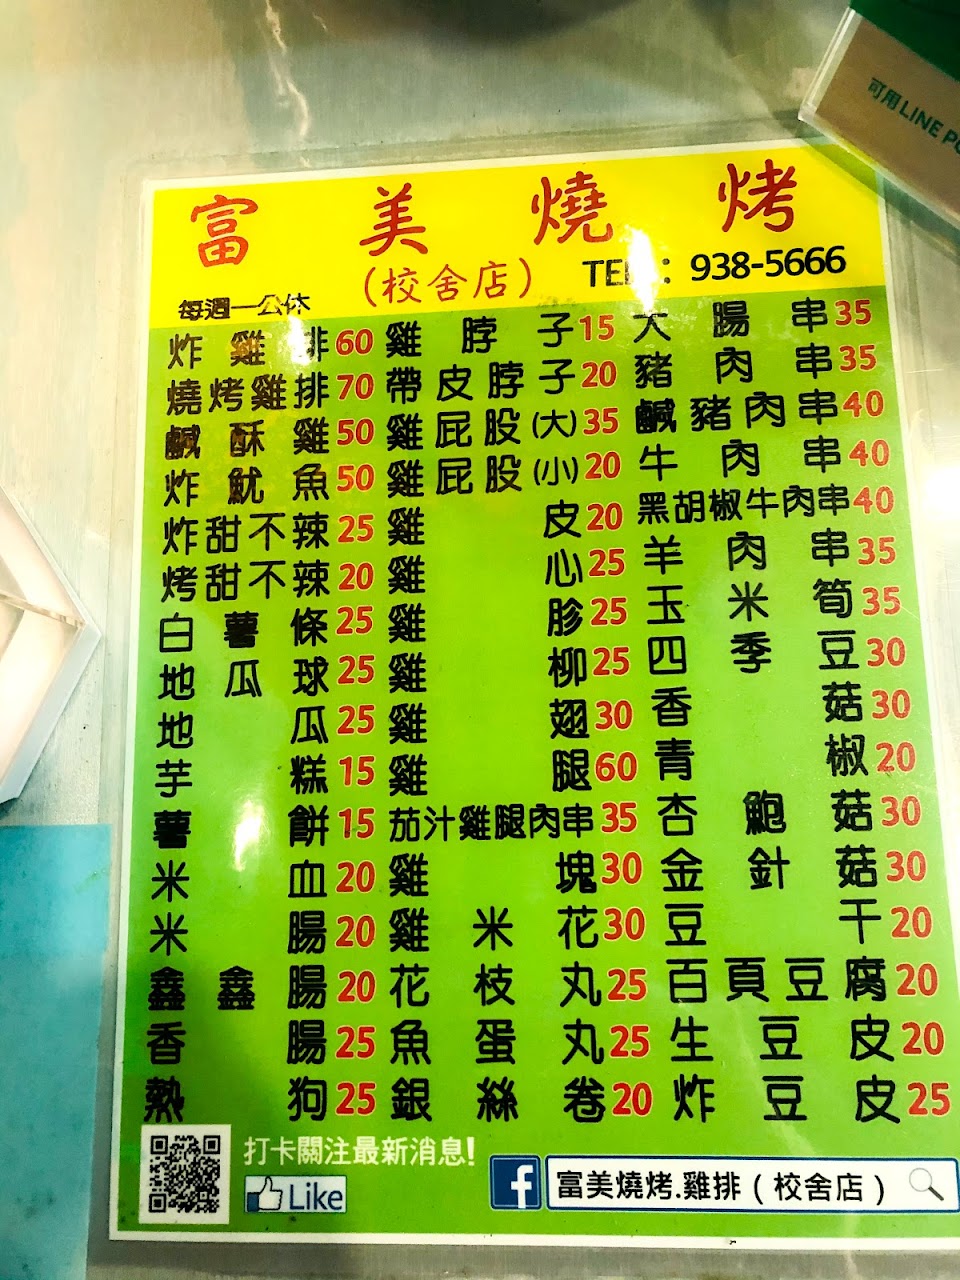 可用LINE PO
富美燒烤
(校舍店)
TEL：938-5666
每週一公休
炸雞排60
燒烤雞排70
鹹酥雞50
炸魷魚50
炸甜不辣25
烤甜不辣20
白薯條25
地瓜球25
地瓜25
芋糕15
薯餅15
米血20
米腸20
鑫鑫腸20
香腸25
熱狗25
雞脖子15
帶皮脖子20
雞屁股(大)35
雞屁股(小)20
雞皮20
雞心25
雞胗25
雞柳25
雞翅30
雞腿60
茄汁雞腿肉串35
雞塊30
雞米花30
花枝丸25
魚蛋丸25
銀絲卷20
大腸串35
豬肉串35
鹹豬肉串40
牛肉串40
黑胡椒牛肉串40
羊肉串35
玉米筍35
四季豆30
香菇30
青椒20
杏鮑菇30
金針菇30
豆干20
百頁豆腐20
生豆皮20
炸豆皮25
打卡關注最新消息!
Like
f 富美燒烤.雞排(校舍店)